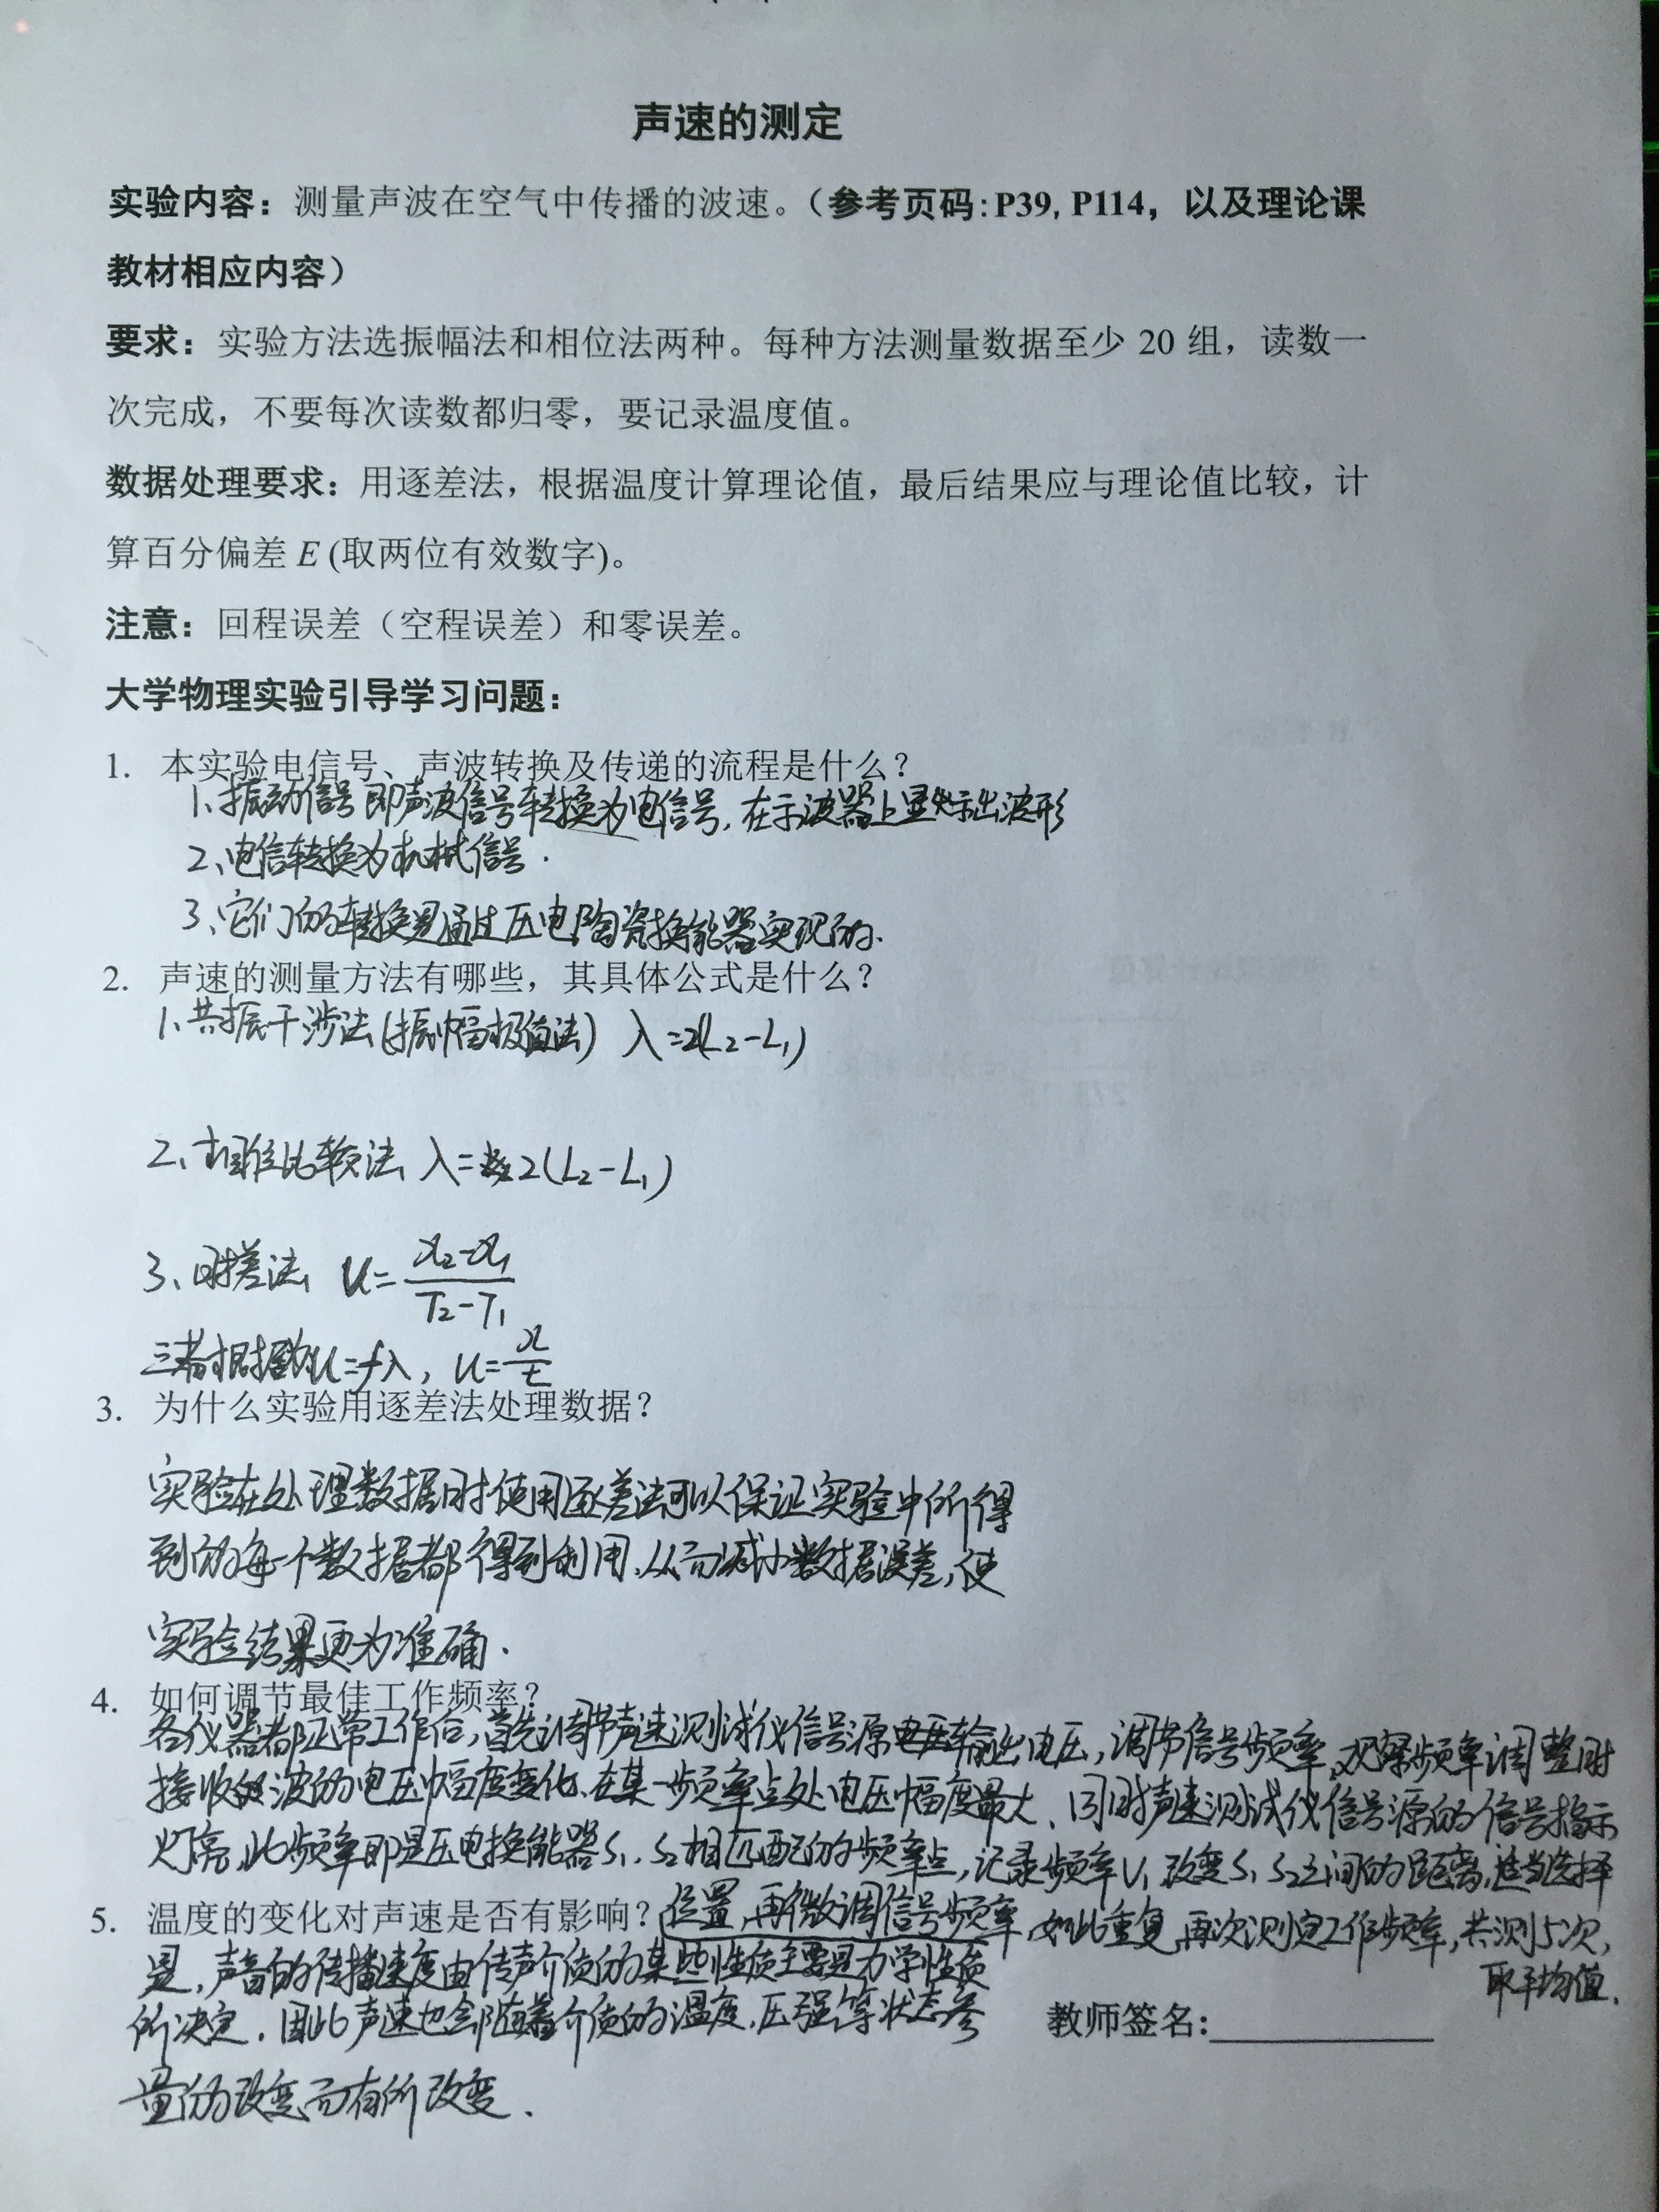 声速的测定
实验内容：测量声波在空气中传播的波速。（参考页码：P39, P114，以及理论课
教材相应内容）
要求：实验方法选振幅法和相位法两种。每种方法测量数据至少 20 组，读数一
次完成，不要每次读数都归零，要记录温度值。
数据处理要求：用逐差法，根据温度计算理论值，最后结果应与理论值比较，计
算百分偏差 E (取两位有效数字)。
注意：回程误差（空程误差）和零误差。
大学物理实验引导学习问题：
1. 本实验电信号、声波转换及传递的流程是什么？
1、振动信号即声波信号转换为电信号，在示波器上显示出波形
2、电信转换为机械信号．
3、它们的转换是通过压电陶瓷换能器实现的．
2. 声速的测量方法有哪些，其具体公式是什么？
1、共振干涉法(振幅极值法) λ=2(L₂-L₁)
2、相位比较法 λ=2(L₂-L₁)
3、时差法 u= x₂-x₁ / T₂-T₁
三者根据为u=fλ，u= x/t
3. 为什么实验用逐差法处理数据？
实验在处理数据时使用逐差法可以保证实验中所得
到的每一个数据都得到利用，从而减小数据误差，使
实验结果更为准确．
4. 如何调节最佳工作频率？
各仪器都正常工作后，首先调节声速测试仪信号源输出电压，调节信号频率，观察频率调整时
接收波的电压幅度变化，在某一频率点处电压幅度最大、同时声速测试仪信号源的信号指示
灯亮，此频率即是压电换能器S₁、S₂相匹配的频率点，记录频率υ，改变S₁ S₂之间的距离，适当选择
位置，再微调信号频率，如此重复，再次测定工作频率，共测5次，
取平均值．
5. 温度的变化对声速是否有影响？
是，声音的传播速度由传声介质的某些性质主要是力学性质
所决定．因此声速也会随着介质的温度，压强等状态参
量的改变而有所改变．
教师签名：